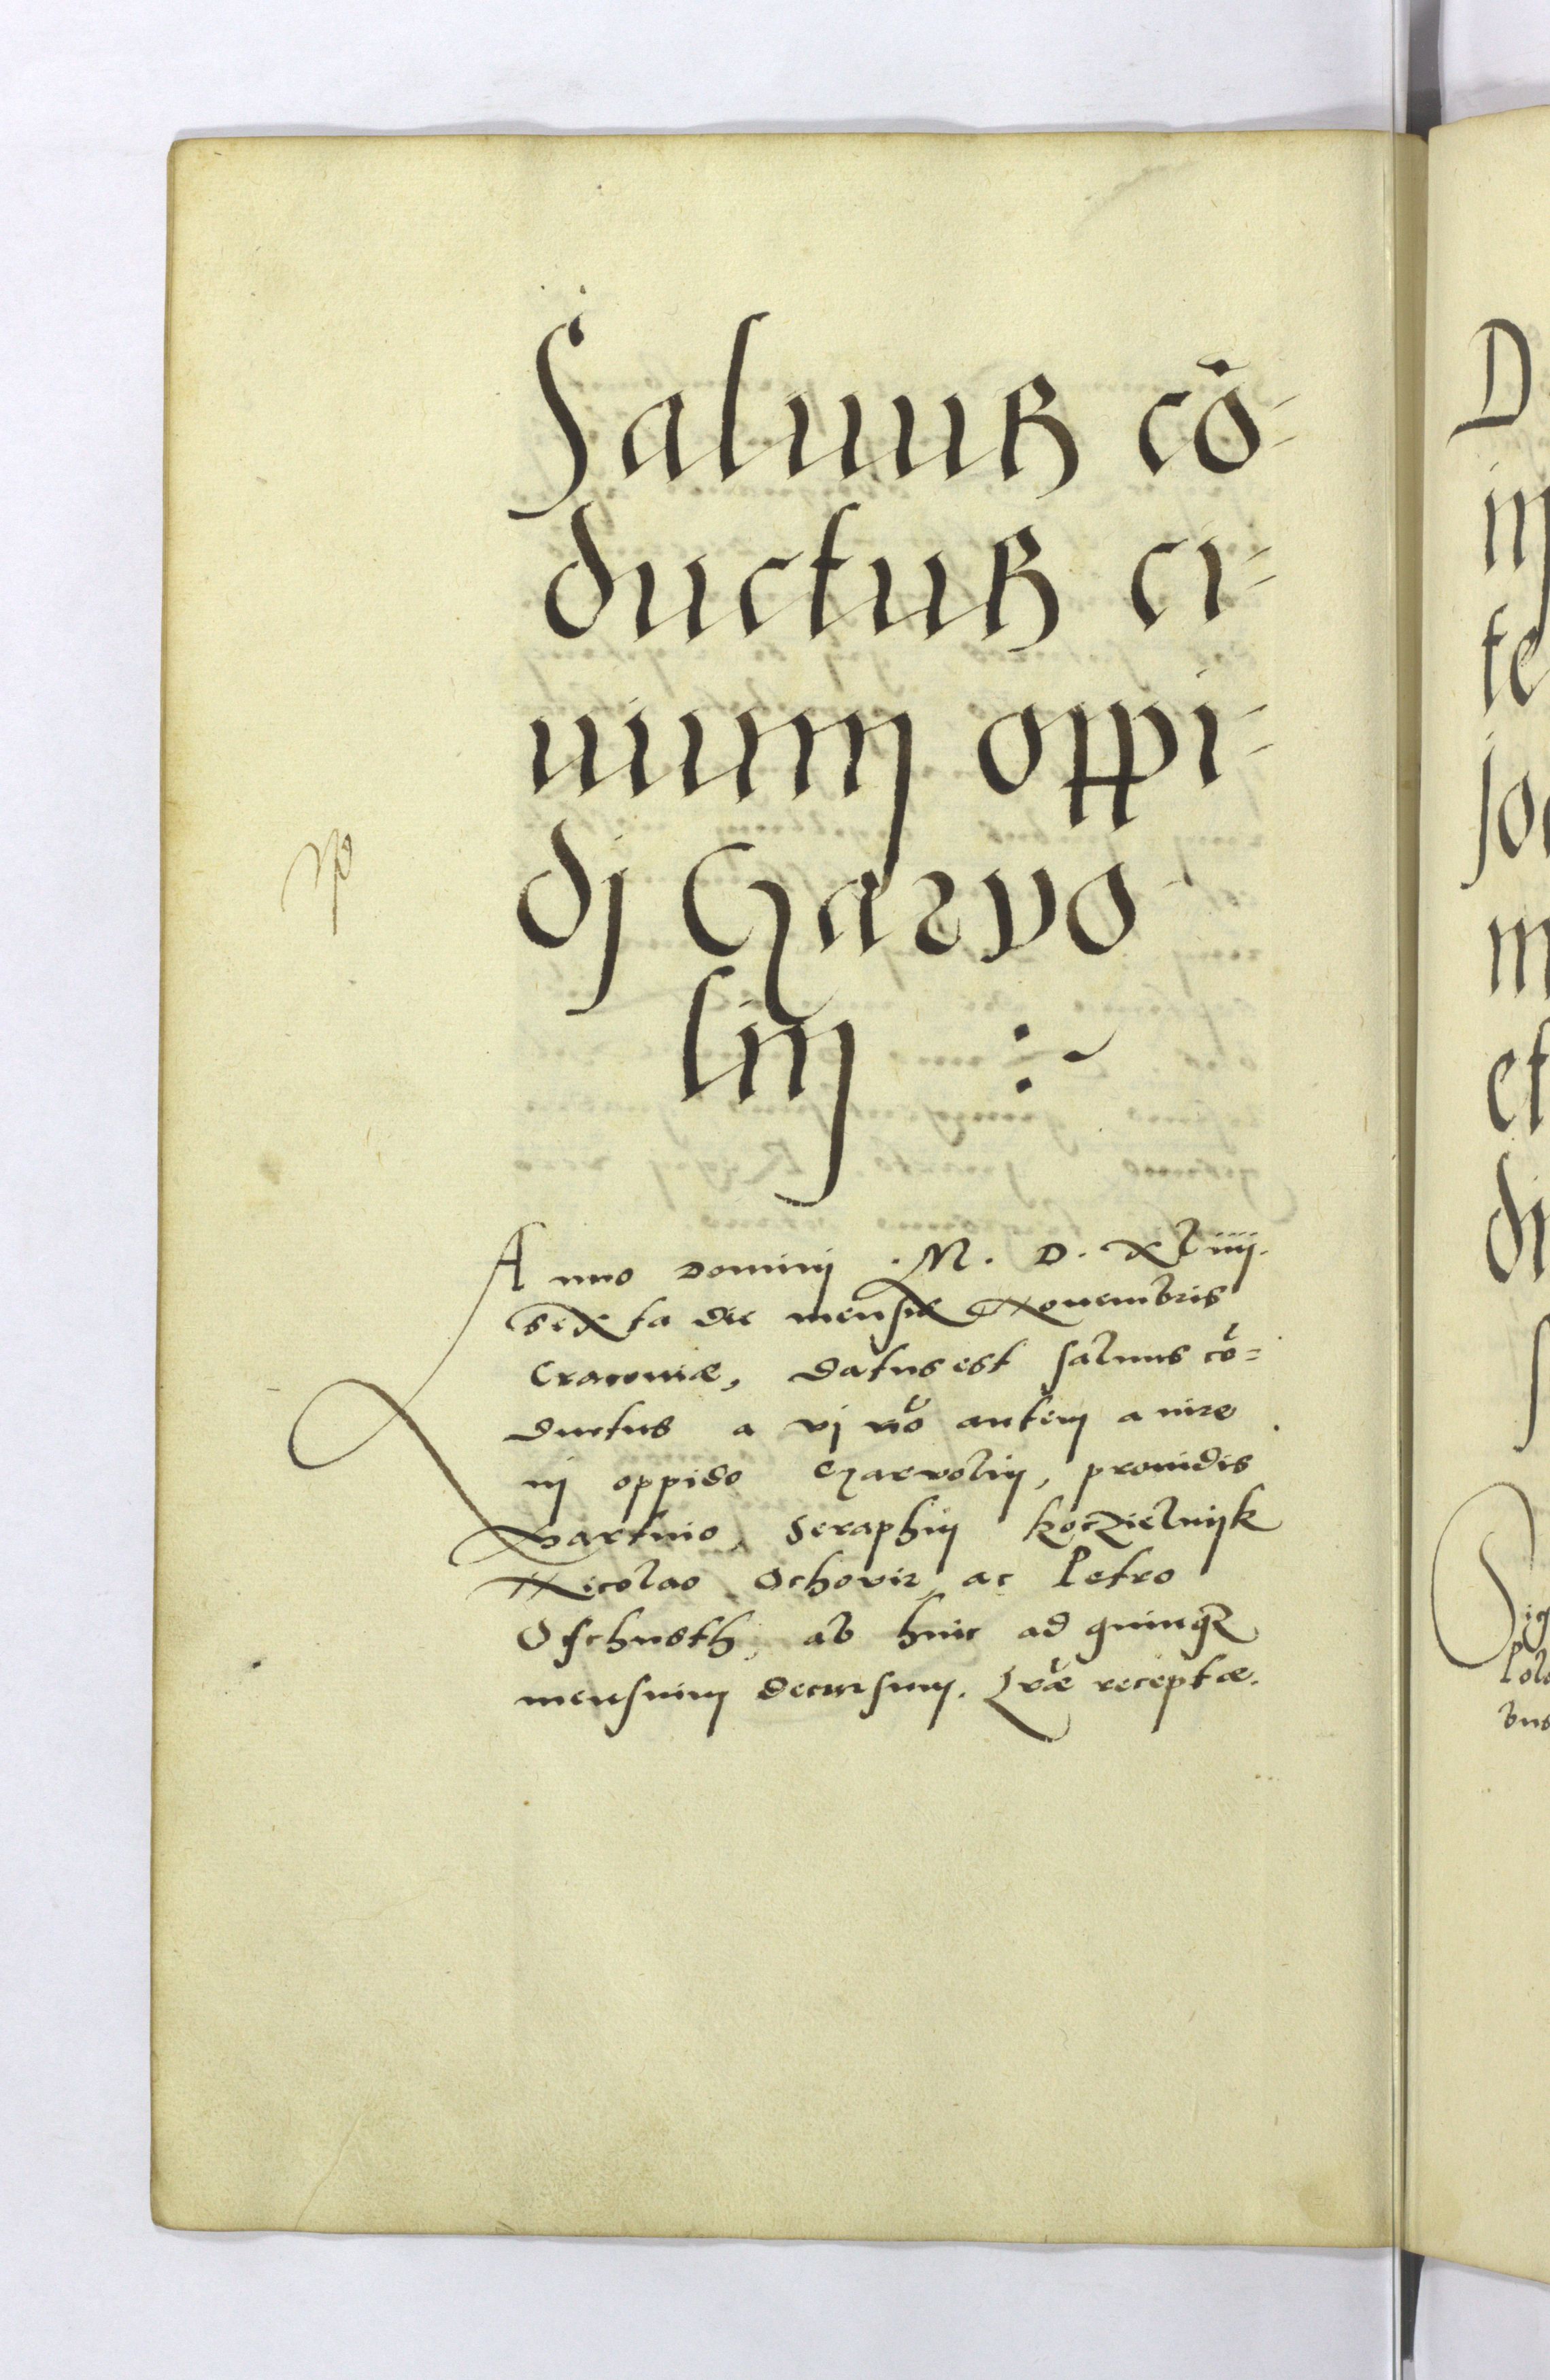 Saluus cō-
ductus ci-
uium oppi-
dj Czarvo
lin :~
Anno Domini .M. D. xliiij.
sexta die mensis Nouembris
Cracouiæ, datus est saluus cō=
ductus a vj nō autem a iure
in oppido Czarvolin, prouidis
Martino, Seraphin koczielnijk
Nicolao Ochovir, ac Petro
Oschusth, ab hinc ad quinqz
mensium decursum. Lræ receptæ.
D
in
te
jo
m
et
di